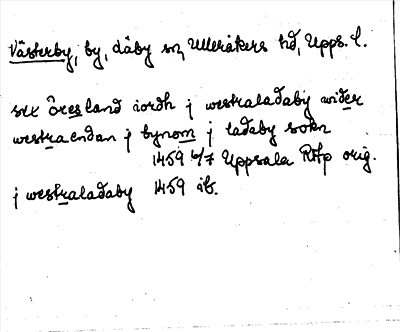 Västerby, by, däby sn, Ulleråkers hd, Upps. l.
sex öresland iordh j westraladaby wider
westraendan j bynom j ladaby sokn
1459 6/7 Uppsala Rtfp orig.
j westraladaby 1459 ib.